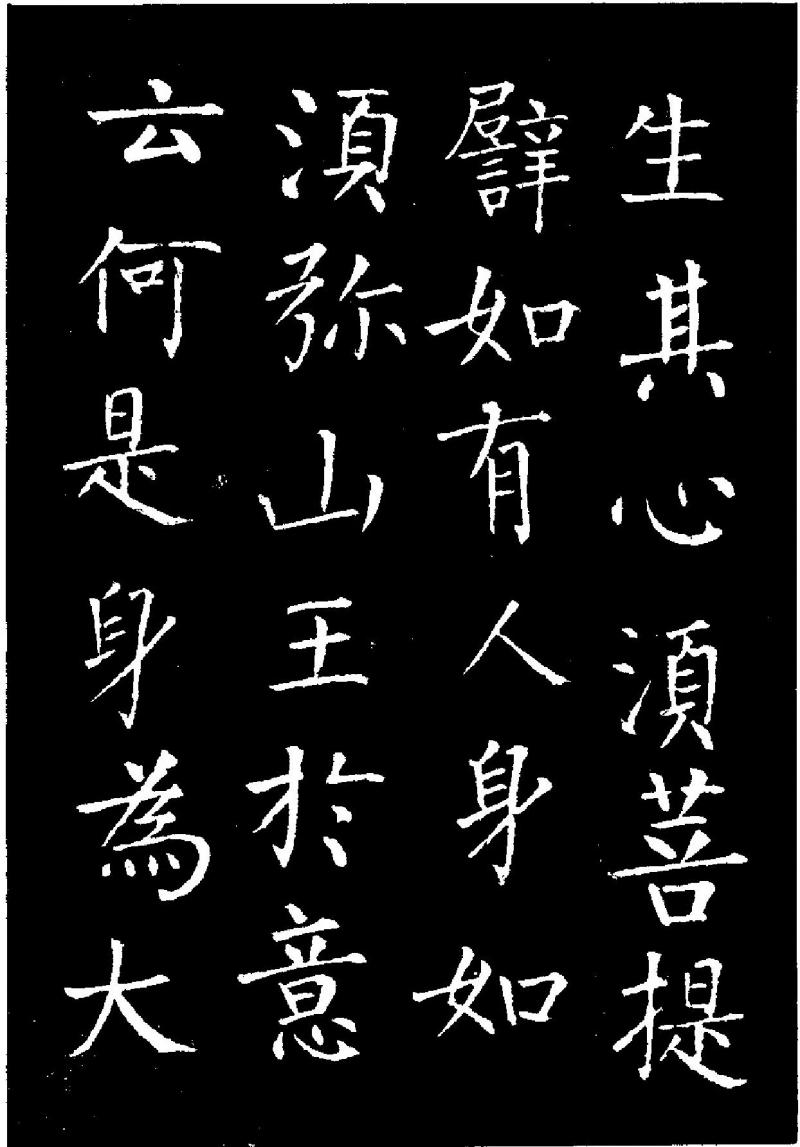 生其心湏菩提
譬如有人身如
湏弥山王於意
云何是身為大